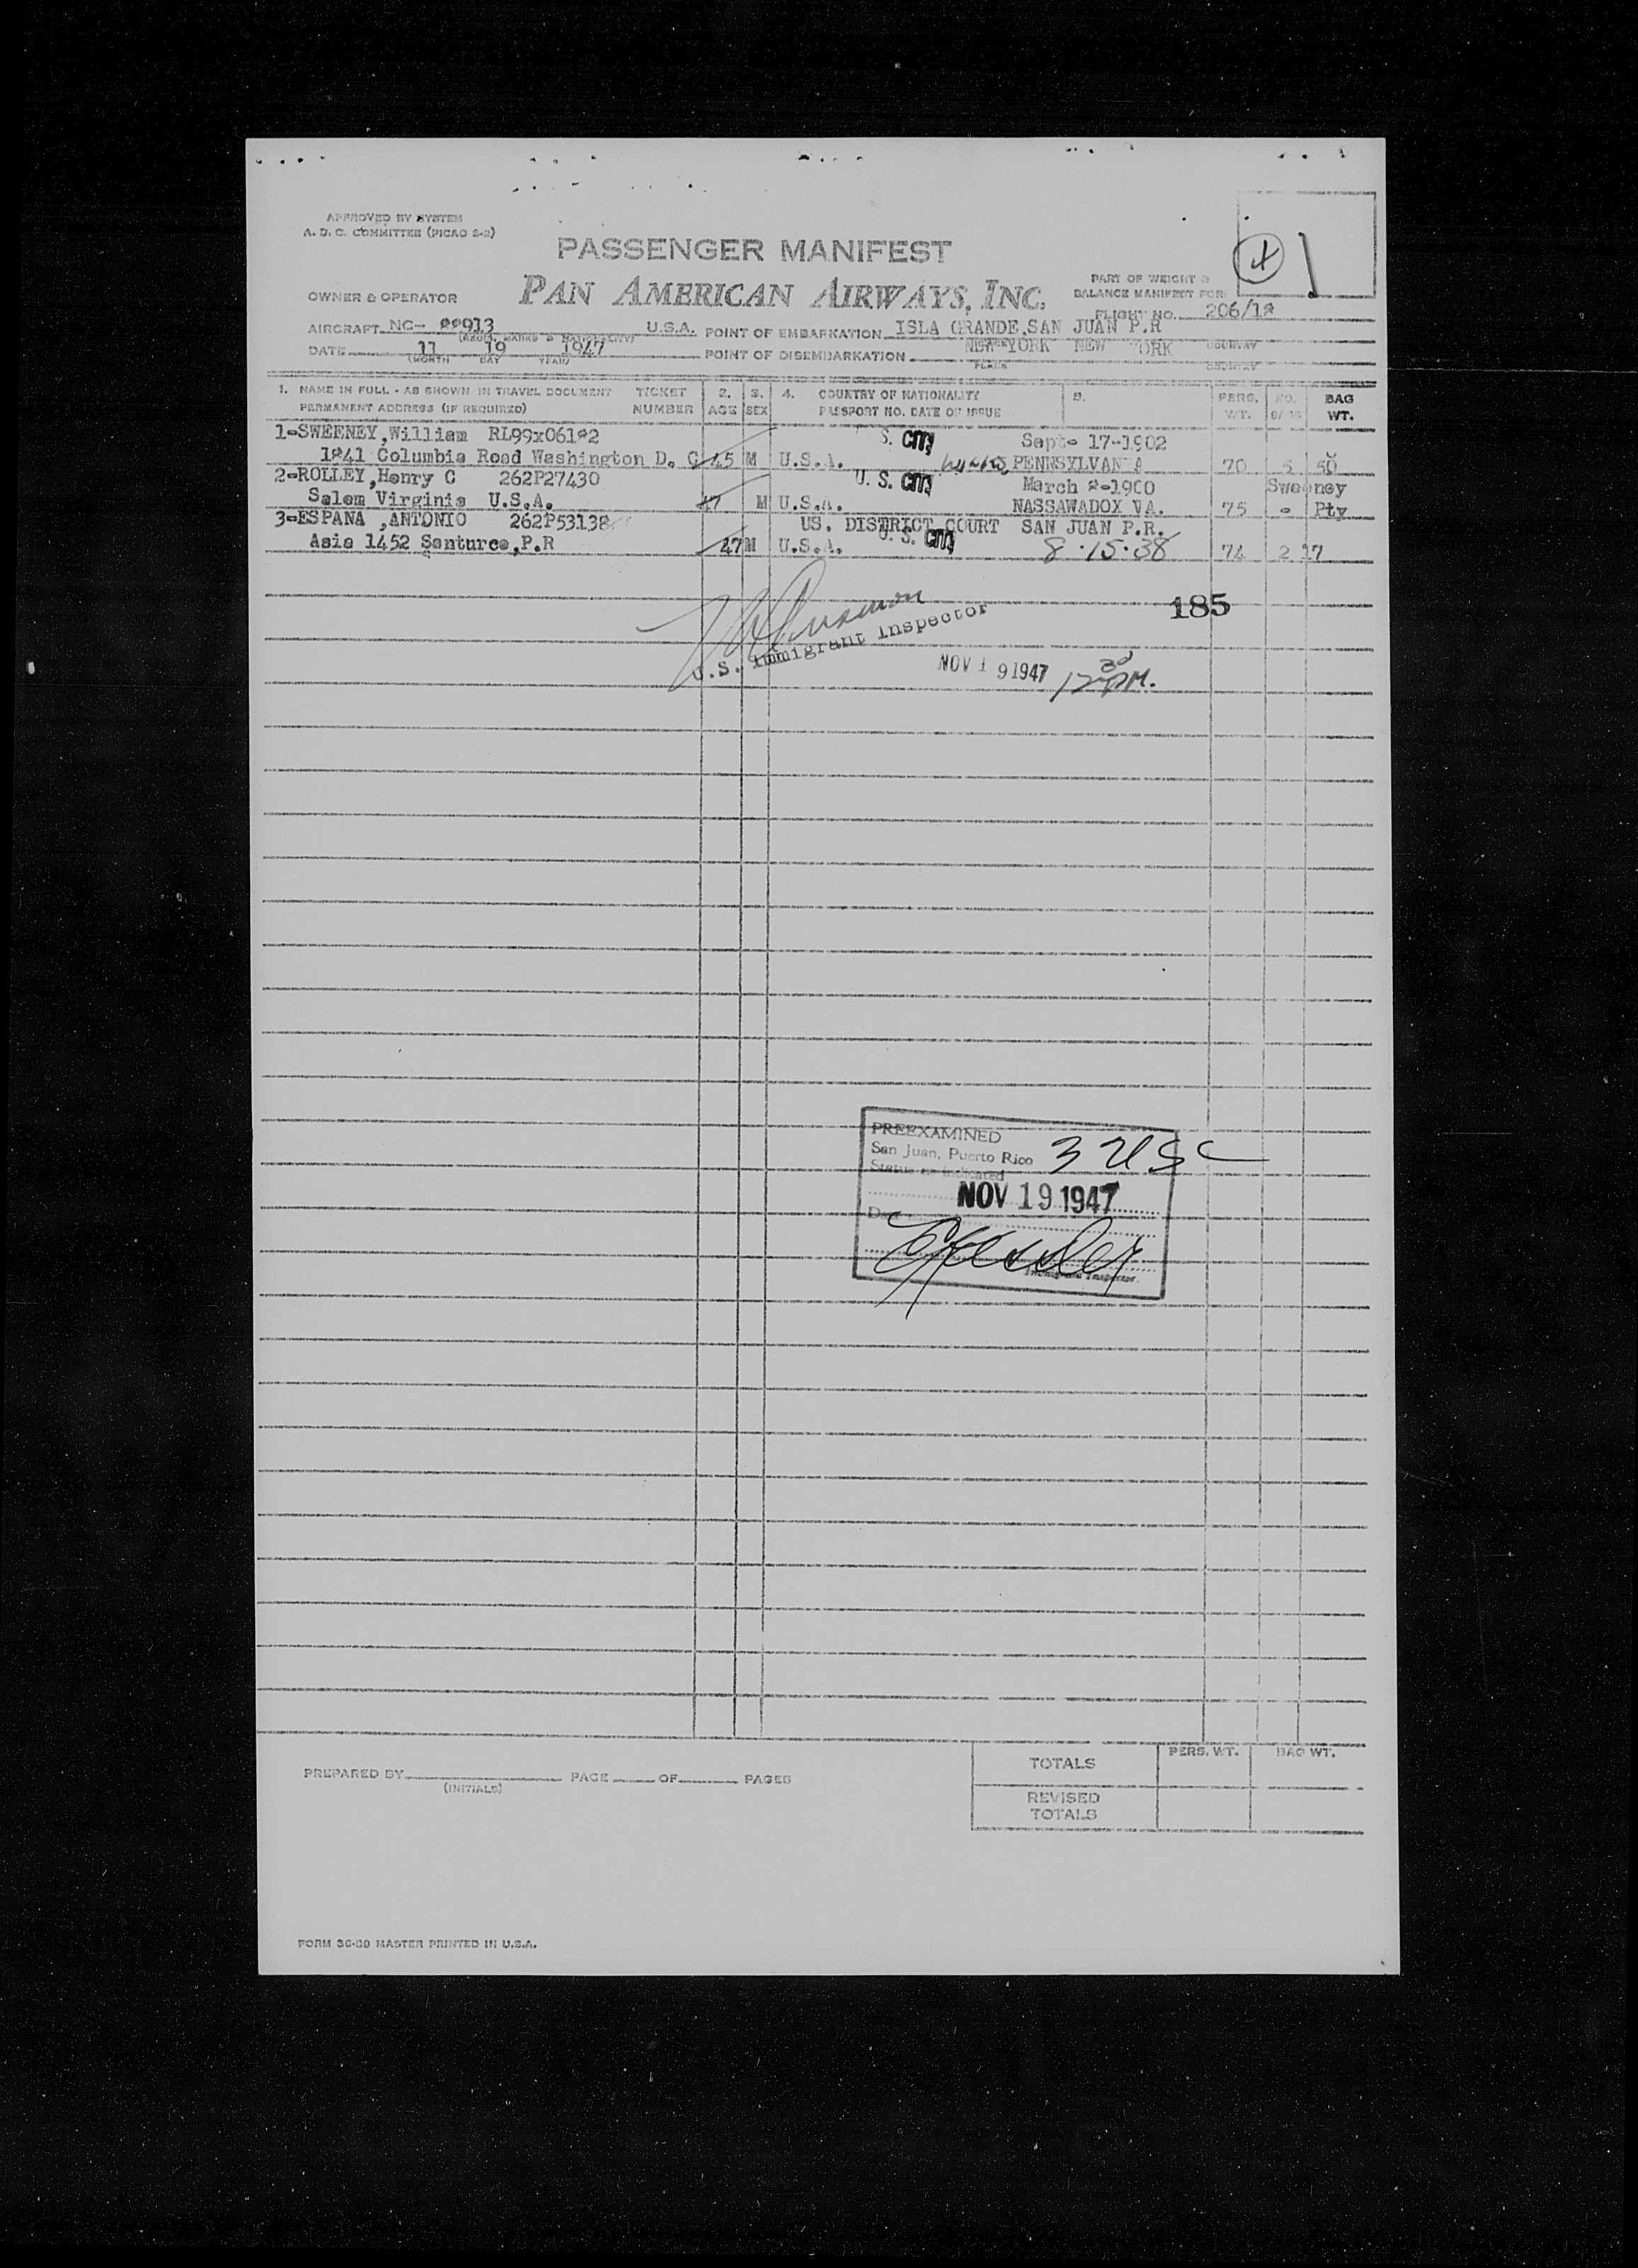 APPROVED BY SYSTEM
A. D. C. COMMITTEE (PICAO S-2)
PASSENGER MANIFEST
PAN AMERICAN AIRWAYS, INC.
OWNER & OPERATOR
PART OF WEIGHT &
BALANCE MANIFEST FOR:
FLIGHT NO. 206/18
AIRCRAFT NC- 88913 U.S.A. POINT OF EMBARKATION ISLA GRANDE, SAN JUAN P.R
(REGIS. MARKS & NATIONALITY)
DATE 11 19 1947 POINT OF DISEMBARKATION NEW YORK NEW YORK COUNTRY
(MONTH DAY YEAR) PLACE COUNTRY
1. NAME IN FULL - AS SHOWN IN TRAVEL DOCUMENT TICKET 2. 3. 4. COUNTRY OF NATIONALITY 5. PERS. NO. BAG
PERMANENT ADDRESS (IF REQUIRED) NUMBER AGE SEX PASSPORT NO. DATE OF ISSUE WT. WT.
1-SWEENEY,William RL99x06182 S. CITY Sept- 17-1902
1841 Columbia Road Washington D. C 45 M U.S.A. PENNSYLVANIA 70 5 50
2-ROLLEY,Henry C 262P27430 U. S. CITY March 8-1900 Sweeney
Salem Virginia U.S.A. 47 M U.S.A. NASSAWADOX VA. 75 - Pty
3-ESPANA ,ANTONIO 262P53138 US. DISTRICT COURT SAN JUAN P.R.
U. S. CITY
Asia 1452 Santurce,P.R 47 M U.S.A. 8·15·38 74 2 17
185
U.S. Immigrant Inspector
NOV 19 1947 12 30 PM.
PREEXAMINED
San Juan, Puerto Rico 3 USC
Status as indicated
NOV 19 1947
Date
Immigrant Inspector
TOTALS PERS. WT. BAG WT.
PREPARED BY PAGE OF PAGES
(INITIALS)
REVISED
TOTALS
FORM 30-80 MASTER PRINTED IN U.S.A.